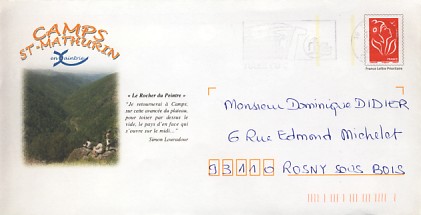 CAMPS
ST-MATHURIN
en Xaintrie
« Le Rocher du Peintre »
"Je retournerai à Camps,
sur cette avancée du plateau,
pour toiser par dessus le
vide, le pays d'en face qui
s'ouvre sur le midi..."
Simon Louradour
France Lettre Prioritaire
Monsieur Dominique DIDIER
6 Rue Edmond Michelet
93110 ROSNY SOUS BOIS